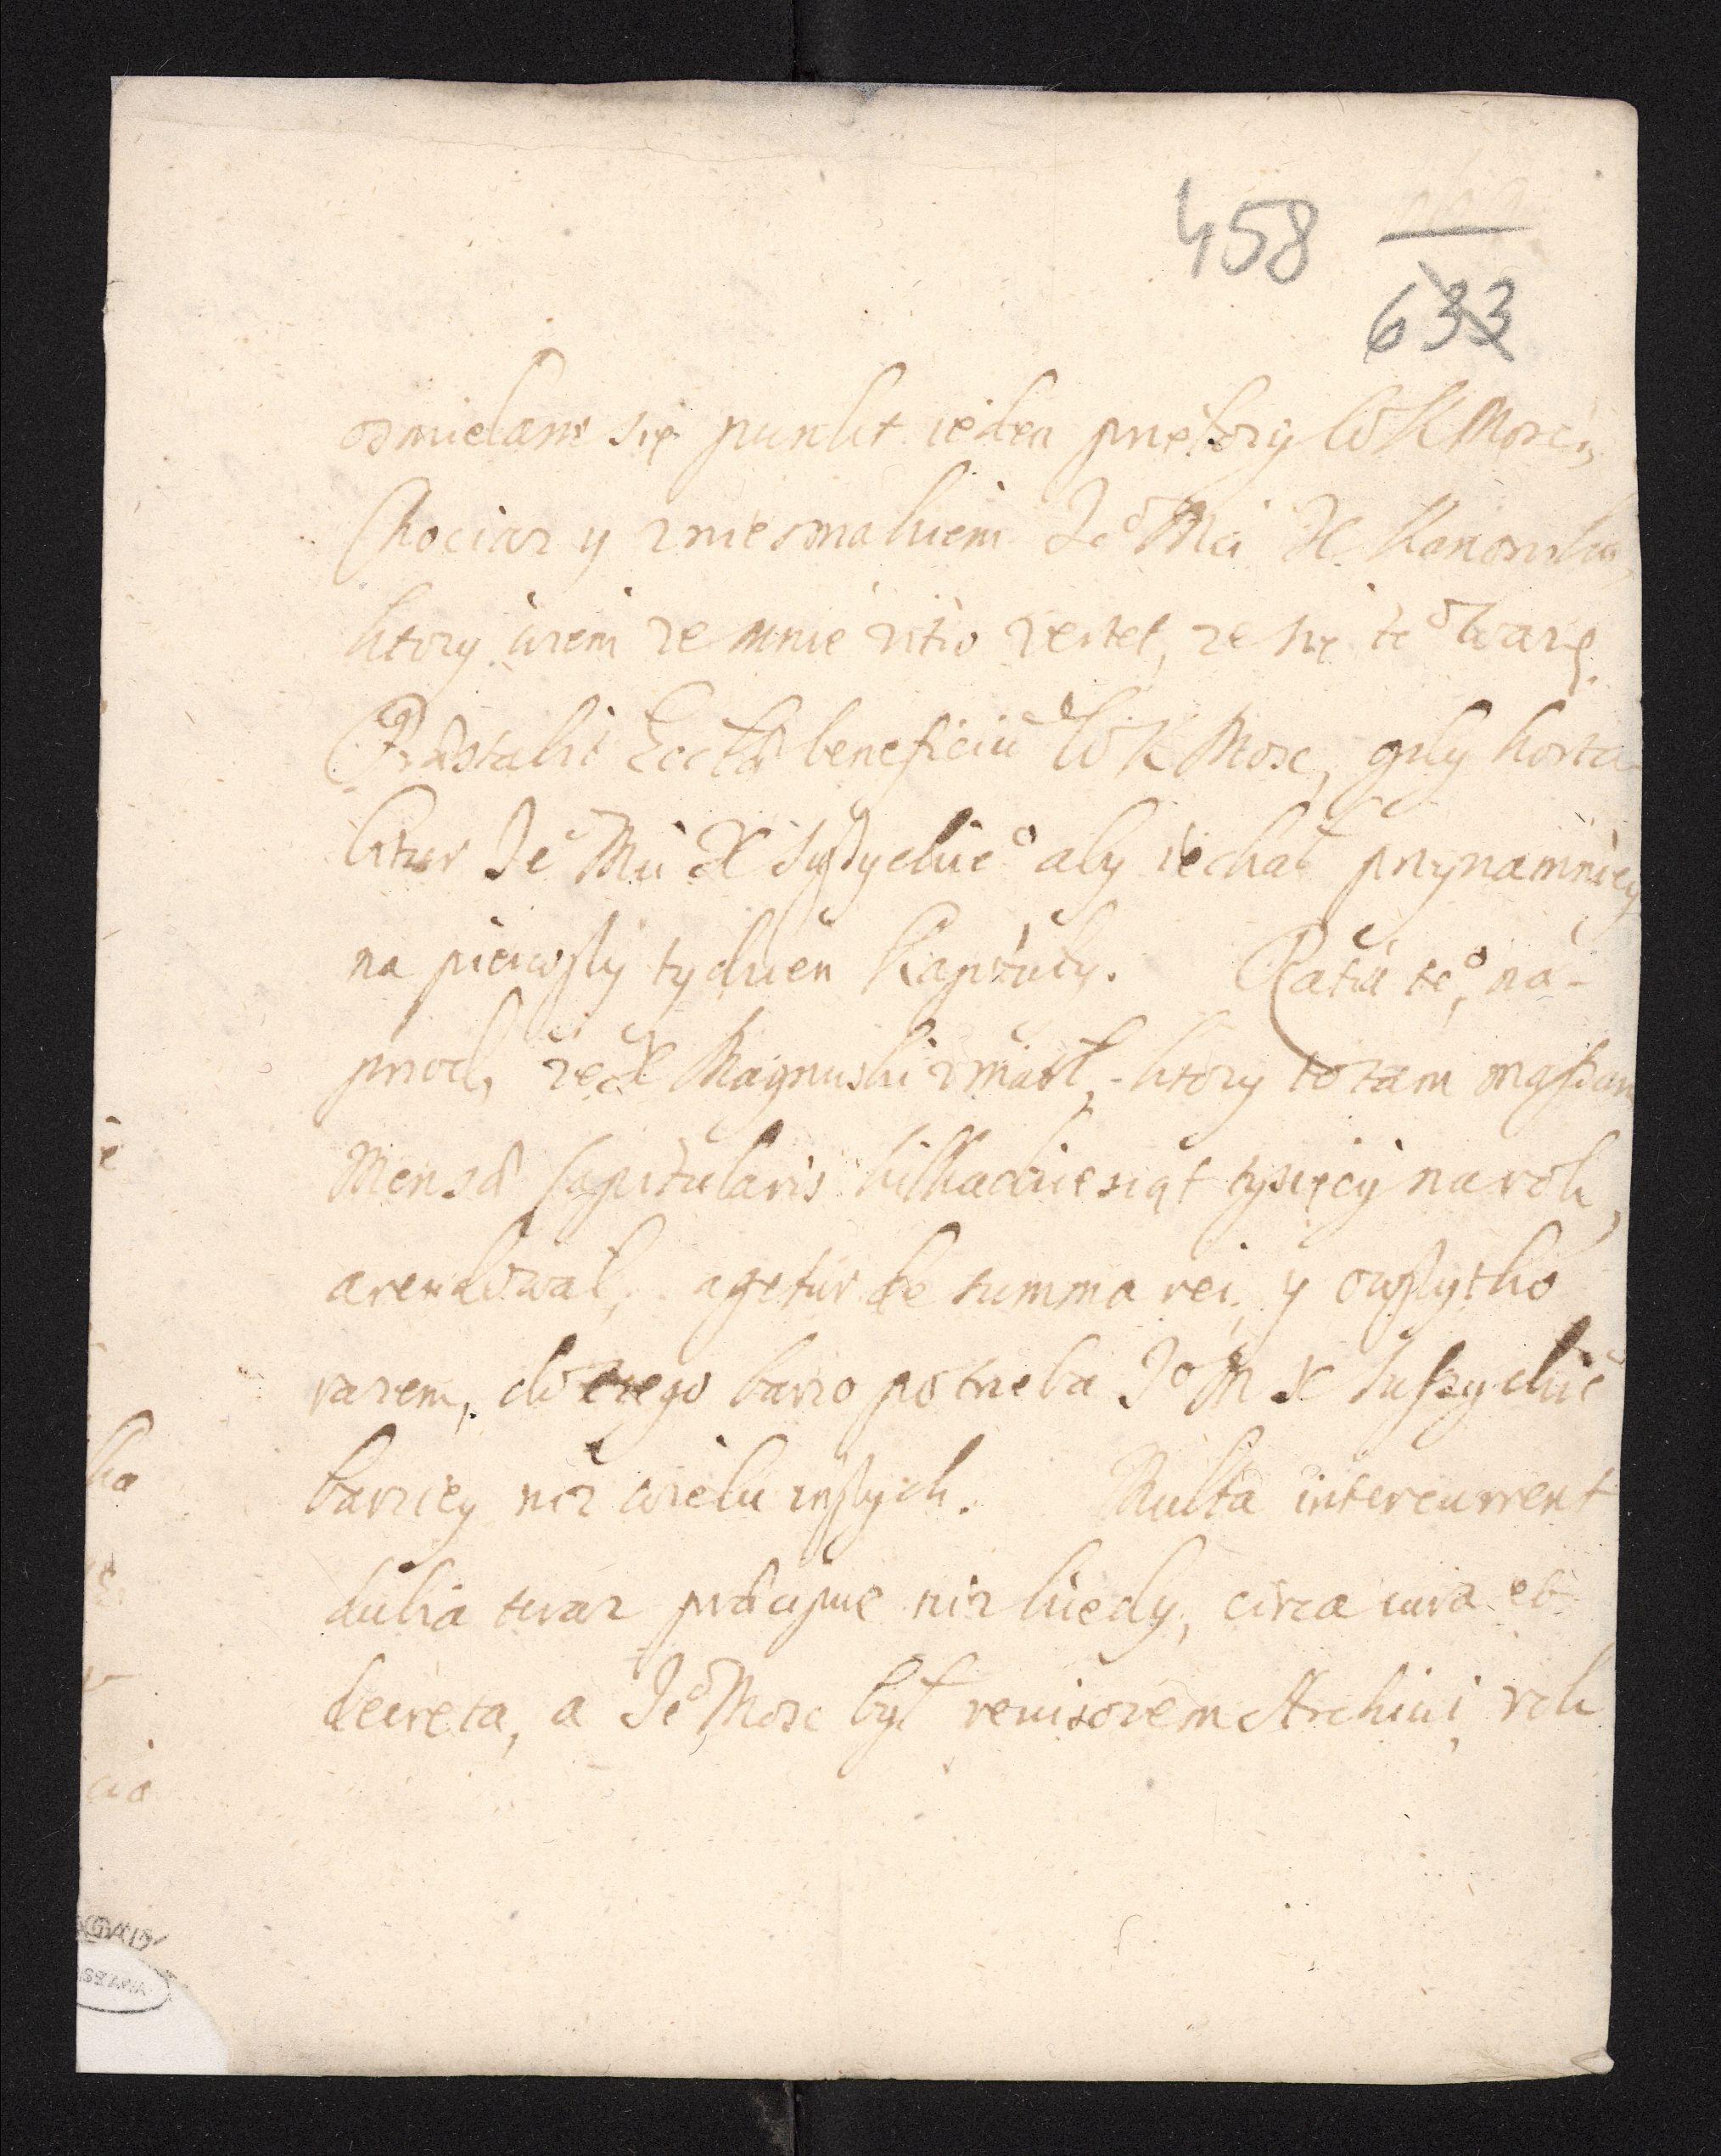 458
633
osmielam się punkt ieden przełozy W K Mosci,
Chociaz y z niesmakiem Je͠o Mci X. Kanonika,
ktory wiem ze mnie vitio vertet, ze się te͠o waze.
Præstabit Ecclæ beneficiũ W K Mosc, gdy horta-
bitur Je͠o Mci X Szyszyckie͠o aby iechał przynamniey
na pierwszy tydzien Kapituły. Ratia te͠o, na-
przod, ze X Magnuski zmarł, ktory totam massam
Mensæ Capitularis kilkadziesiąt tysięcy na rok,
arendował, agetur de summa rei, y o wszytko
razem, do czego barzo potrzeba J͠o M X
barziey niz wielu inszych. Multa intercurrent
dubia teraz præcipue niz kiedy, circa iura et
decreta, a Je͠o Mosc był revisorem Archivi, rok
ie
ka
cia